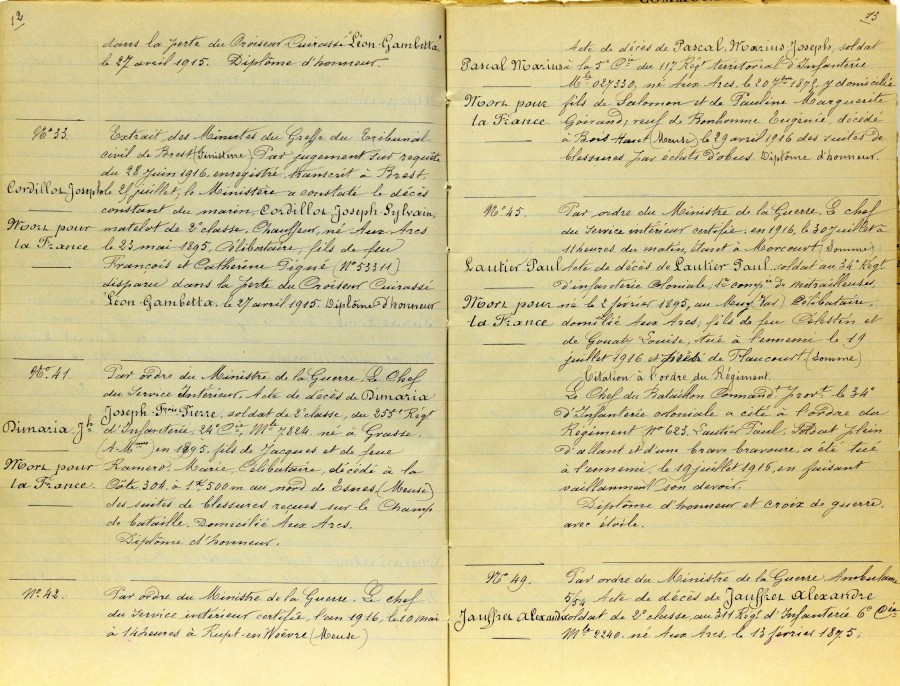 12
dans la perte du Croiseur Cuirassé "Léon-Gambetta"
le 27 avril 1915. Diplôme d'honneur.
N° 33.
Cordillot Joseph
Mort pour
la France
Extrait des Minutes du Greffe du Tribunal
civil de Brest (Finistère) Par jugement sur requête
du 28 Juin 1916, enregistré, transcrit à Brest,
le juillet, le Ministère a constaté le décès
constant du marin, Cordillot Joseph-Sylvain,
matelot de 2e classe, Chauffeur, né Aux Arcs
le 23 mai 1895, Célibataire, fils de feu
François et Catherine Gigné (N° 53311)
disparu dans la perte du Croiseur Cuirassé
"Léon-Gambetta, le 27 avril 1915. Diplôme d'honneur
N° 41.
Dimaria Jh
Mort pour
la France.
Par ordre du Ministre de la Guerre. Le Chef
du Service Intérieur. Acte de décès de Dimaria
Joseph-Fois-Pierre, soldat de 2e classe, du 255e Régt
d'Infanterie, 24e Cie, Mle 7824 né à Grasse,
(A-Mmes) en 1895, fils de Jacques et de feue
Ramero Marie, Célibataire, décédé à la
Côte 304, à 1K500m au nord de Esnes (Meuse)
des suites de blessures reçues sur le Champ
de bataille. Domicilié Aux Arcs.
Diplôme d'honneur.
N° 42.
Par ordre du Ministre de la Guerre. Le chef
du Service intérieur certifie, l'an 1916, le 10 mai
à 14 heures à Rupt-en-Woëvre (Meuse)
13
Pascal Marius
Mort pour
la France
Acte de décès de Pascal, Marius Joseph, soldat
à la 5e Cie du 117 Régt territorial d'Infanterie
Mle 027330, né Aux Arcs, le 20 7bre 1875, y domicilié
fils de Salomon et de Pauline Marguerite
Goirand, veuf de Bonhomme Eugénie, décédé
à Bois Haut (Meuse) le 29 avril 1916 des suites de
blessures par éclats d'obus. Diplôme d'honneur.
N° 45.
Lautier Paul
Mort pour
la France
Par ordre du Ministre de la Guerre. Le chef
du Service intérieur certifie, en 1916, le 30 juillet à
11 heures du matin, étant à Morcourt (Somme)
Acte de décès de Lautier Paul, soldat au 34e Régt
d'infanterie Coloniale, 1re compie de mitrailleuses,
né le 2 février 1895, au Muy (Var) Célibataire,
domicilié Aux Arcs, fils de feu Célestin et
de Louise, tué à l'ennemi le 19
juillet 1916 et près de Flaucourt (Somme)
Citation à l'ordre du Régiment.
Le Chef de Bataillon Command.t prov.t le 34e
d'Infanterie coloniale a cité à l'ordre du
Régiment N° 623. Lautier Paul. Soldat plein
d'allant et d'une brave bravoure, a été tué
à l'ennemi, le 19 juillet 1916, en faisant
vaillamment son devoir.
Diplôme d'honneur et croix de guerre
avec étoile.
N° 49.
Jauffret Alexandre
Par ordre du Ministre de la Guerre. Ambulance
5/54 Acte de décès de Jauffret Alexandre
soldat de 2e classe, au 311 Régt d'Infanterie 6e Cie
Mle 2240. né Aux Arcs, le 13 février 1875;